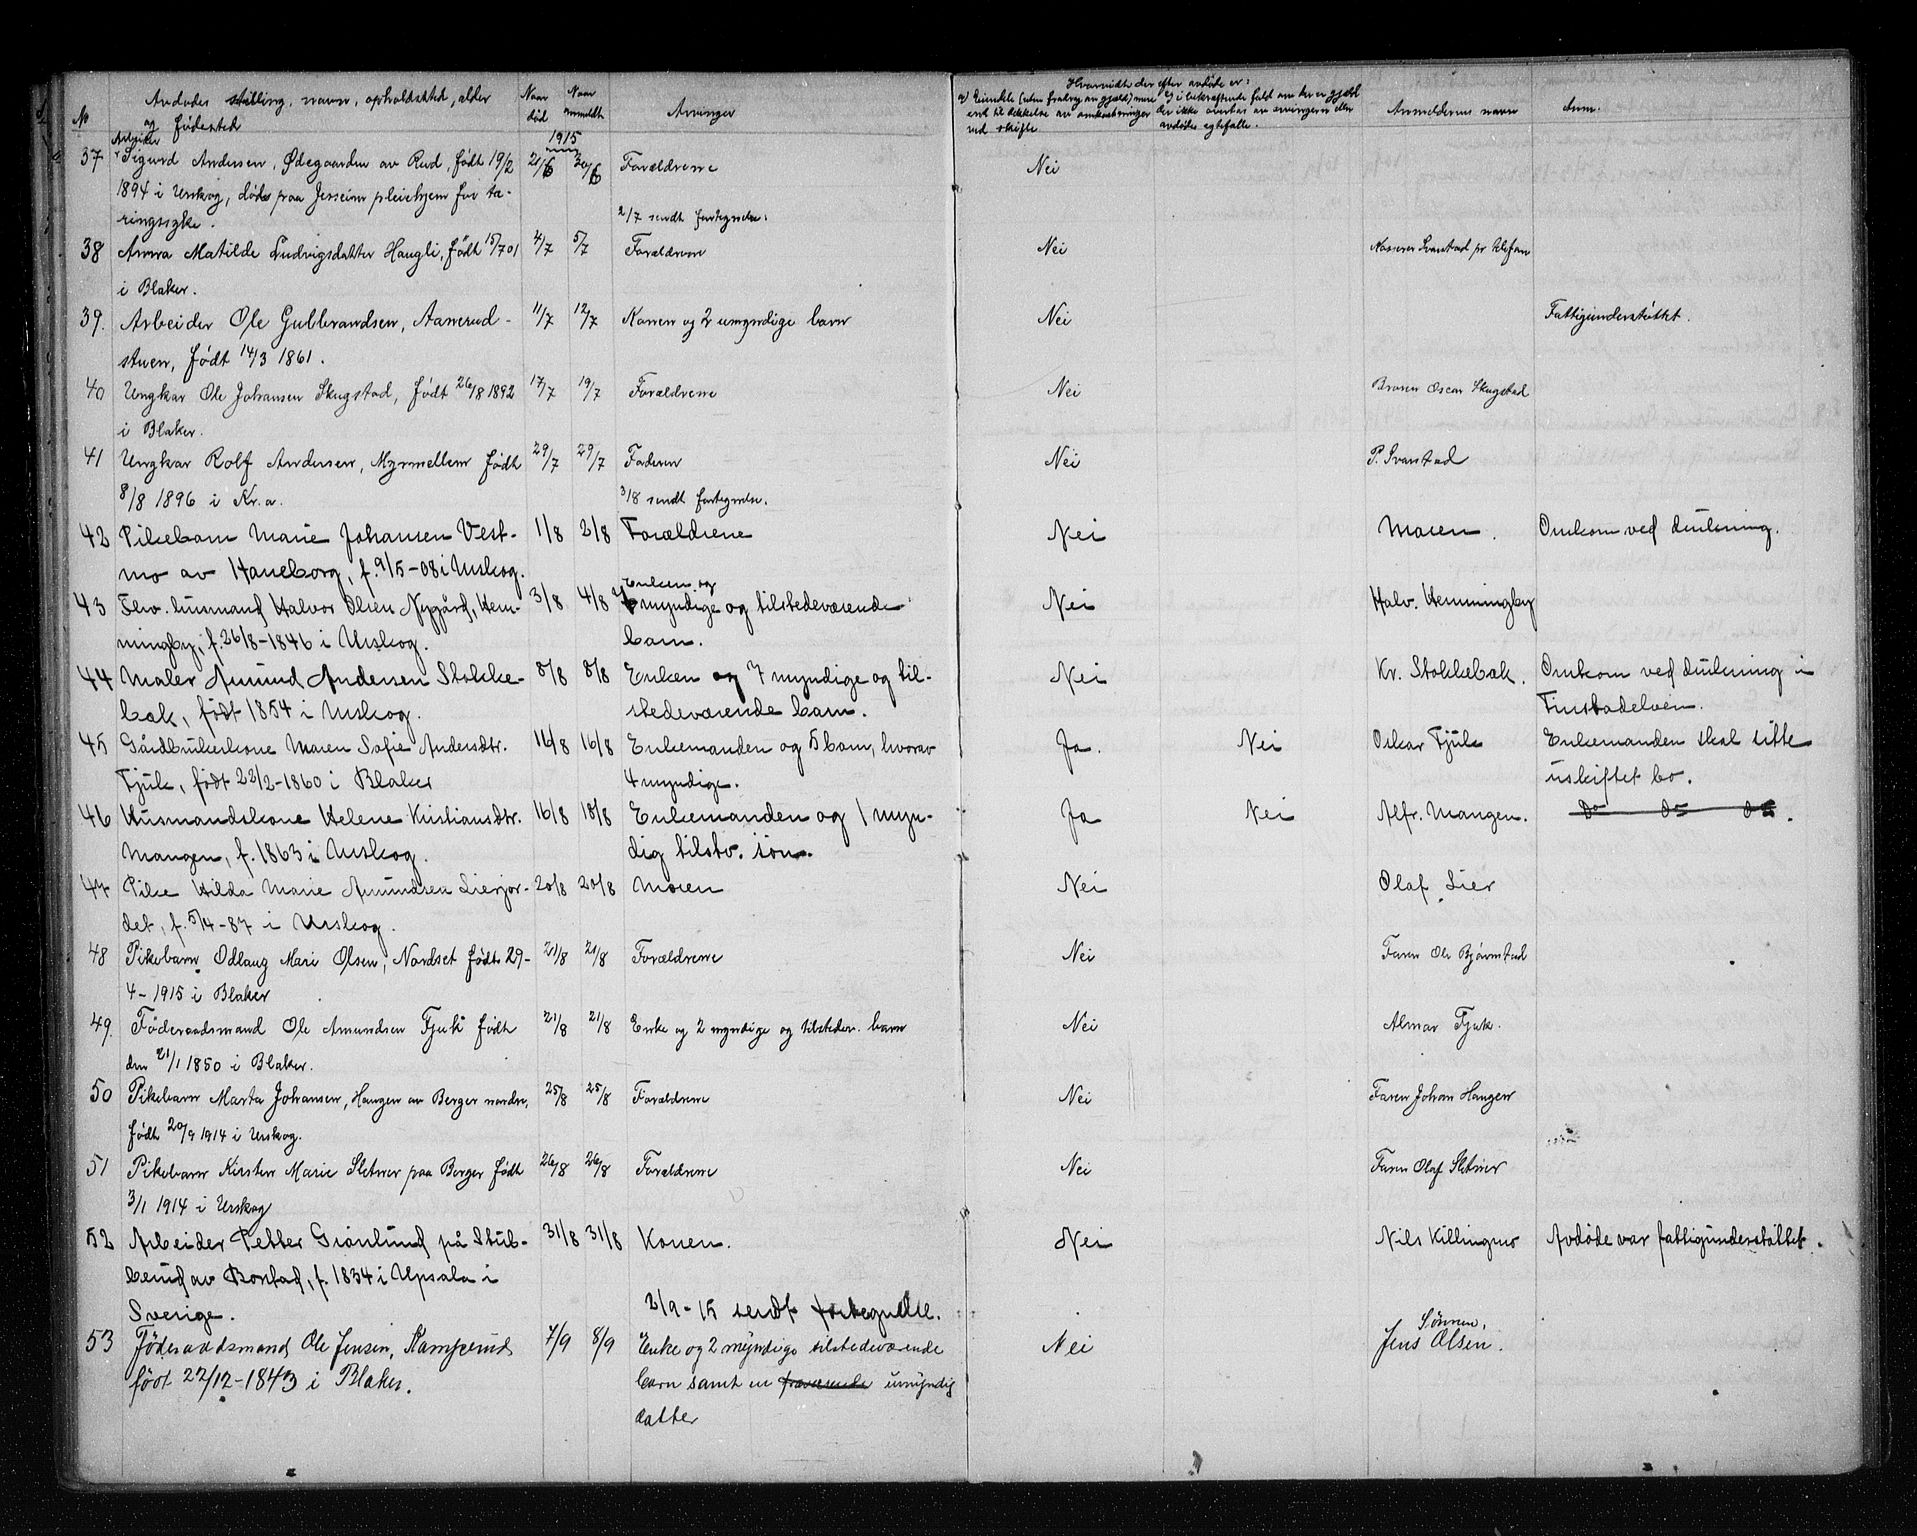 No
Avdødes stilling, navn, opholdssted, alder
og fødested
Naar død
Naar anmeldt
Arvinger
Hvorvidt der efter avdøde er:
a) Eiendele (uten fradrag av gjæld) mere
end til dækkelse av omkostninger
ved skifte
b) i bekræftende fald om der er gjæld
der ikke overtas av arvingerne eller
avdødes egtefælle.
Anmelderens navn
Anm.
1915
37 Arbeider Sigurd Andersen, Ødegaarden av Rud, født 19/2 21/6 30/6 Forældrene Nei
1894 i Urskog, døde paa Jessheim pleiehjem for tæ-
ringssyke. 2/7 sendt fortegnelse.
38 Anna Matilde Ludvigsdatter Haugli, født 15/7 01 4/7 5/7 Forældrene Nei Svanstad pr telefon
i Blaker.
39. Arbeider Ole Gulbrandsen, Aanerud- 11/7 12/7 Konen og 2 umyndige barn Nei Fattigunderstøttet.
stuen, født 14/3 1861.
40 Ungkar Ole Johansen Skugstad, født 26/8 1892 17/7 19/7 Forældrene Nei Broren Oscar Skugstad
i Blaker.
41 Ungkar Rolf Andersen, Myrmellem født 29/7 29/7 Faderen Nei P. Svanstad
8/8 1896 i Kr.a. 3/8 sendt fortegnelse.
42 Pikebarn Marie Johansen Vest- 1/8 2/8 Forældrene Nei Moren. Omkom ved drukning.
mo av Haneborg, f. 9/5-08 i Urskog.
43 Fhv. husmand Halvor Olsen Nygård, Hem- 3/8 4/8 Enken og 7 myndige og tilstedeværende Nei Halv. Hemmingby
mingby, f. 26/8-1846 i Urskog. barn.
44 Maler Amund Andersen Stokke- 8/8 8/8 Enken og 7 myndige og til- Nei Kr. Stokkebæk. Omkom ved drukning i
bæk, født 1854 i Urskog. stedeværende barn. Finstadelven.
45 Gårdbrukerkone Maren Sofie Andersdtr. 16/8 16/8 Enkemanden og 5 barn, hvorav Ja. Nei Oskar Tjuk Enkemanden skal sitte
Tjuk, født 22/2-1860 i Blaker 4 myndige. i uskiftet bo.
46 Husmandskone Helene Kristiansdtr. 16/8 18/8 Enkemanden og 1 myn- Ja Nei Alfr. Mangen. do do do.
Mangen, f. 1863 i Urskog. dig tilstv. søn.
47 Pike Hilda Marie Amundsen Lierjor- 20/8 20/8 Moren Nei Olaf Lier
det, f. 5/4-87 i Urskog.
48 Pikebarn Odlaug Mari Olsen, Nordset født 29- 21/8 21/8 Forældrene Nei Faren Ole Bjørnstad
4-1915 i Blaker
49. Føderaadsmand Ole Amundsen Tjuk født 21/8 21/8 Enke og 2 myndige og tilstedev. barn Nei Almar Tjuk.
den 21/1 1850 i Blaker.
50 Pikebarn Marta Johansen, Haugen av Berger nordre, 25/8 25/8 Forældrene Nei Faren Johan Haugen
født 20/9 1914 i Urskog.
51 Pikebarn Kirsten Marie Sletner paa Berger født 26/8 26/8 Forældrene Nei Faren Olaf Sletner
3/1 1914 i Urskog
52 Arbeider Petter Grønlund på Stub- 31/8 31/8 Konen. Nei Nils Killingmo Avdøde var fattigunderstøttet.
berud av Bonstad, f. 1834 i Upsala i
Sverige. 2/9-15 sendt fortegnelse.
53 Føderaadsmand Ole Jensen, Kamperud 7/9 8/9 Enke og 2 myndige tilstedeværende Nei Sønnen, Jens Olsen.
født 22/12-1843 i Blaker. barn samt en fraværende umyndig
datter